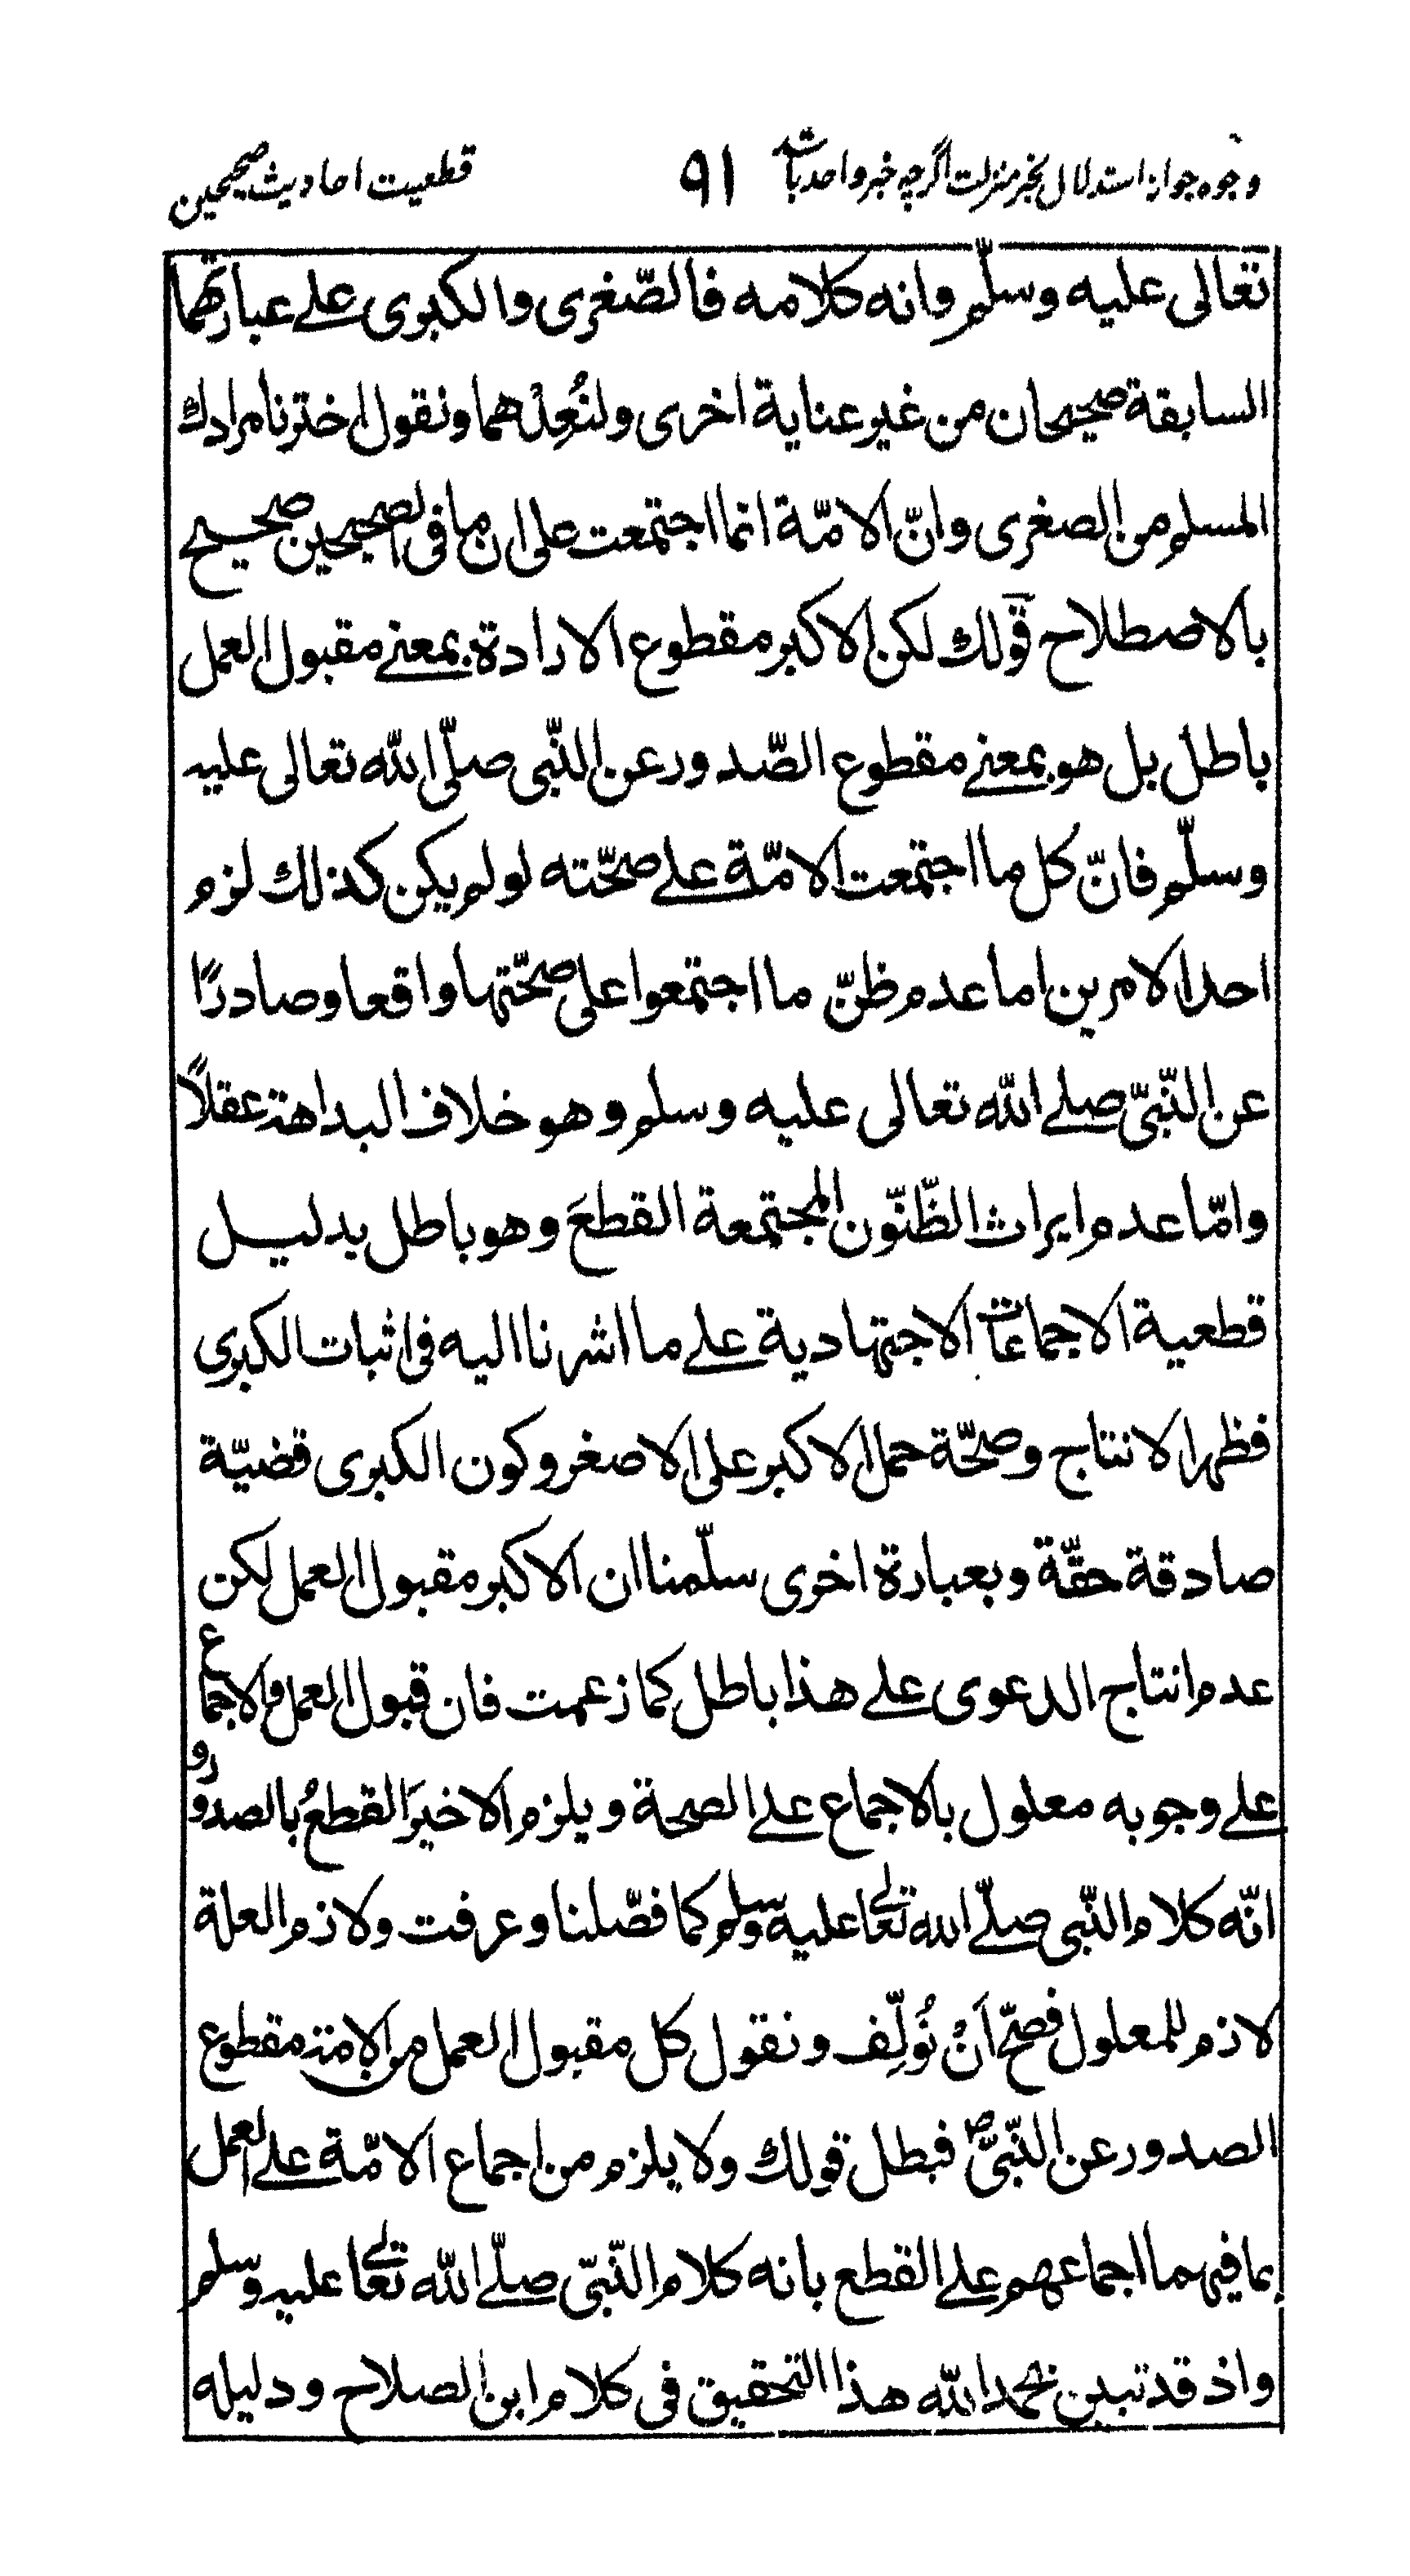 وجوه جواز استدلال بخبر منزلت اگرچه خبر واحد باشد ۹۱ قطعیت احادیث صحیحین
تعالى عليه وسلّم وانه كلامه فالصّغرى والكبرى علے عبارتهما
السابقة صحيحان من غير عناية اخرى ولنُعِدْهما ونقول اخترنا مرادك
المسلم من الصغرى وانّ الامّة انما اجتمعت على ان ما فى الصحيحين صحيح
بالاصطلاح قولك لكن الاكبر مقطوع الارادة بمعنے مقبول العمل
باطل بل هو بمعنے مقطوع الصّدور عن النّبى صلّى اللّه تعالى عليه
وسلّم فانّ كل ما اجتمعت الامّة علے صحّته لو لم يكن كذلك لزم
احد الامرين اما عدم ظنّ ما اجتمعوا على صحّتها واقعا وصادرًا
عن النّبىّ صلے اللّه تعالى عليه وسلم وهو خلاف البداهة عقلاً
وامّا عدم ايراث الظّنّون المجتمعة القطعَ وهو باطل بدليل
قطعية الاجماعات الاجتهادية علے ما اشرنا اليه فى اثبات الكبرى
فظهر الانتاج وصحّة حمل الاكبر على الاصغر وكون الكبرى قضيّة
صادقة حقّة وبعبارة اخرى سلّمنا ان الاكبر مقبول العمل لكن
عدم انتاج الدعوى علے هذا باطل كما زعمت فان قبول العمل والاجماع
علے وجوبه معلول بالاجماع علے الصحة ويلزم الاخيرَ القطعُ بالصدور و
انّه كلام النّبى صلّے اللّه تعالے عليه وسلم كما فصّلنا وعرفت ولازم العلة
لازم للمعلول فصحّ اَنْ نُولِّف ونقول كل مقبول العمل من الامة مقطوع
الصدور عن النّبىّ ص فبطل قولك ولا يلزم من اجماع الامّة علے العمل
بما فيهما اجماعهم علے القطع بانه كلام النّبىّ صلّے اللّه تعالے عليه وسلم
واذ قد تبين بحمد اللّه هذا التحقيق فى كلام ابن الصلاح ودليله